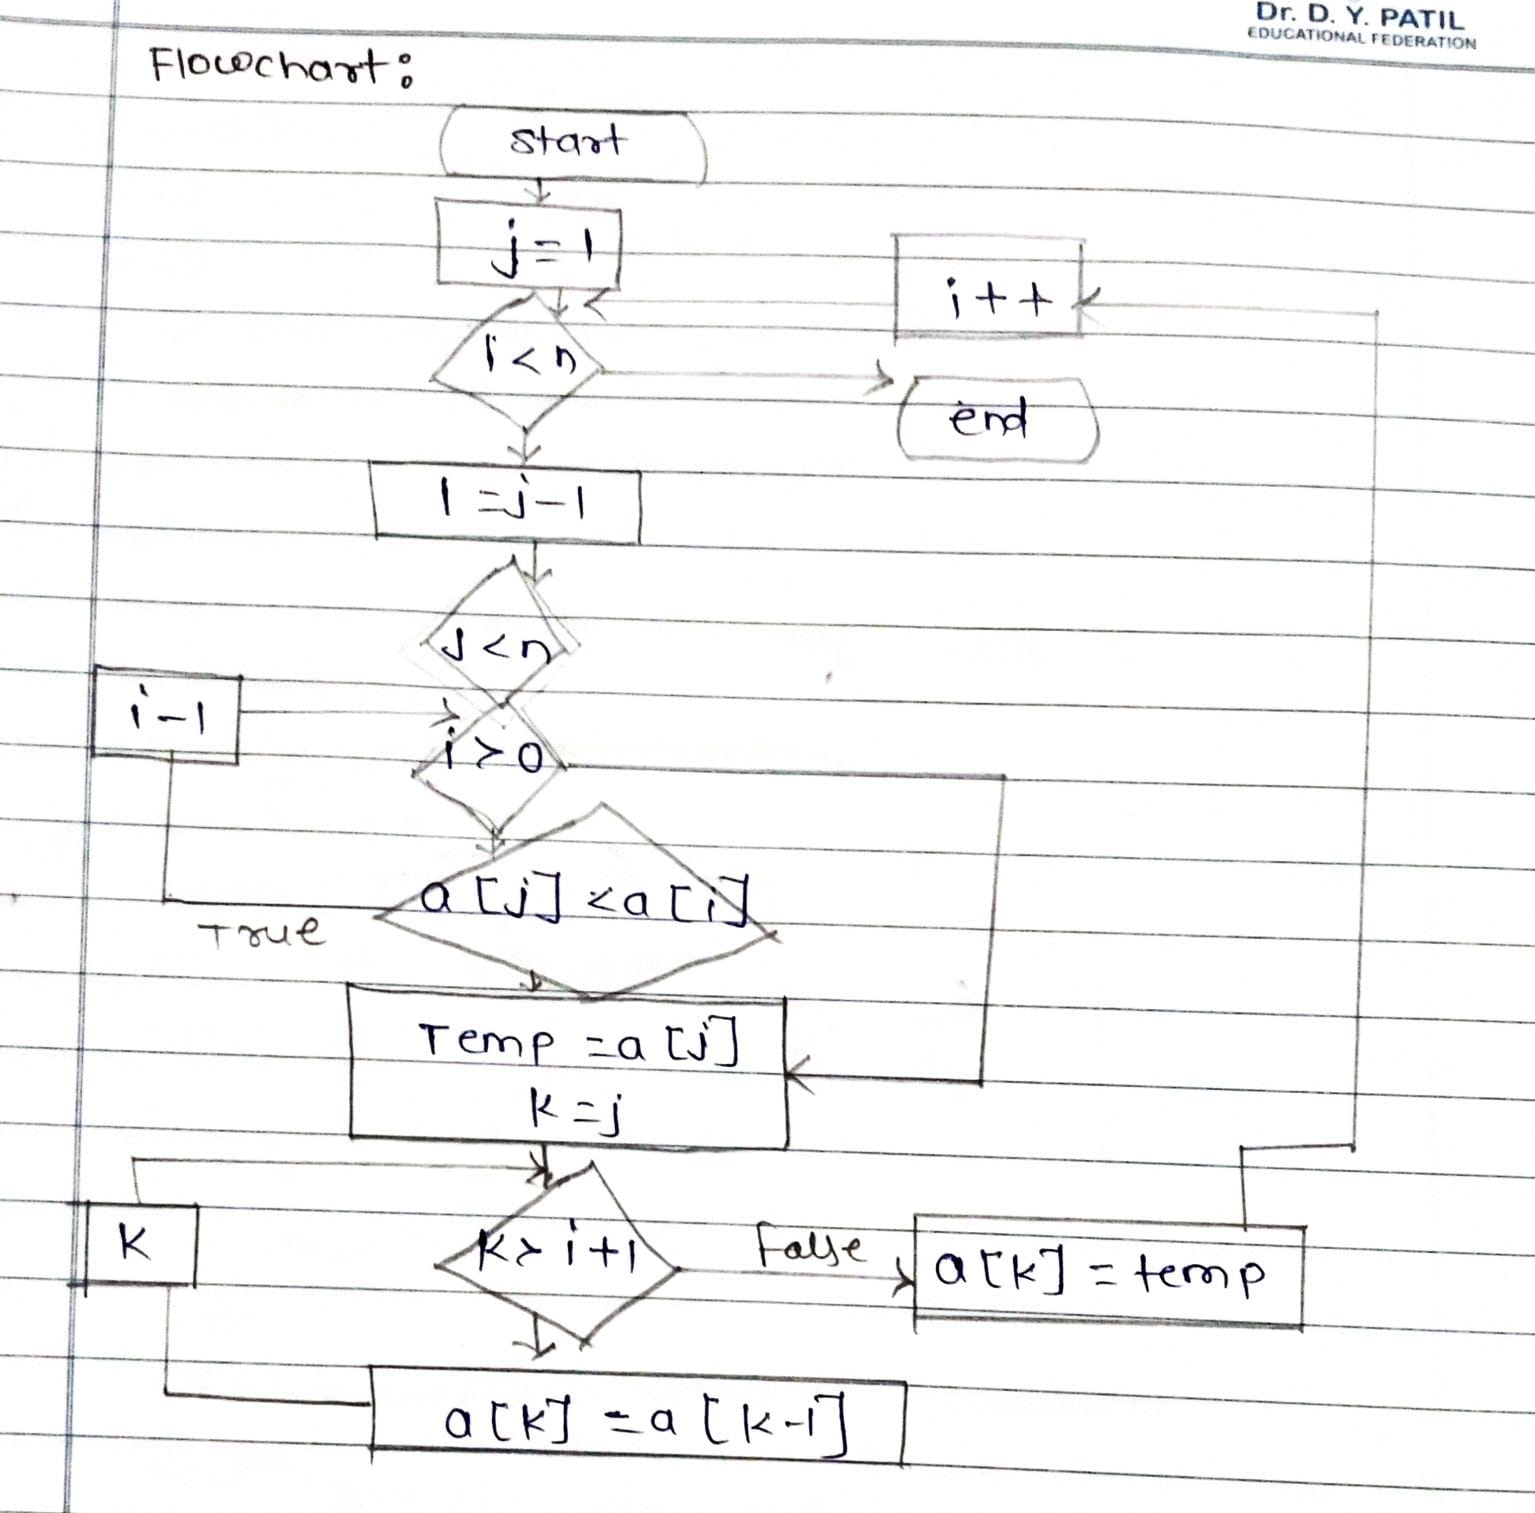 Dr. D. Y. PATIL
EDUCATIONAL FEDERATION
Flowchart:
start
j = 1
i++
i < n
end
I = j - 1
J < n
i - 1
i > 0
a [j] < a [i]
True
Temp = a [j]
k = j
K
k > i + 1
False
a [k] = temp
a [k] = a [k - 1]